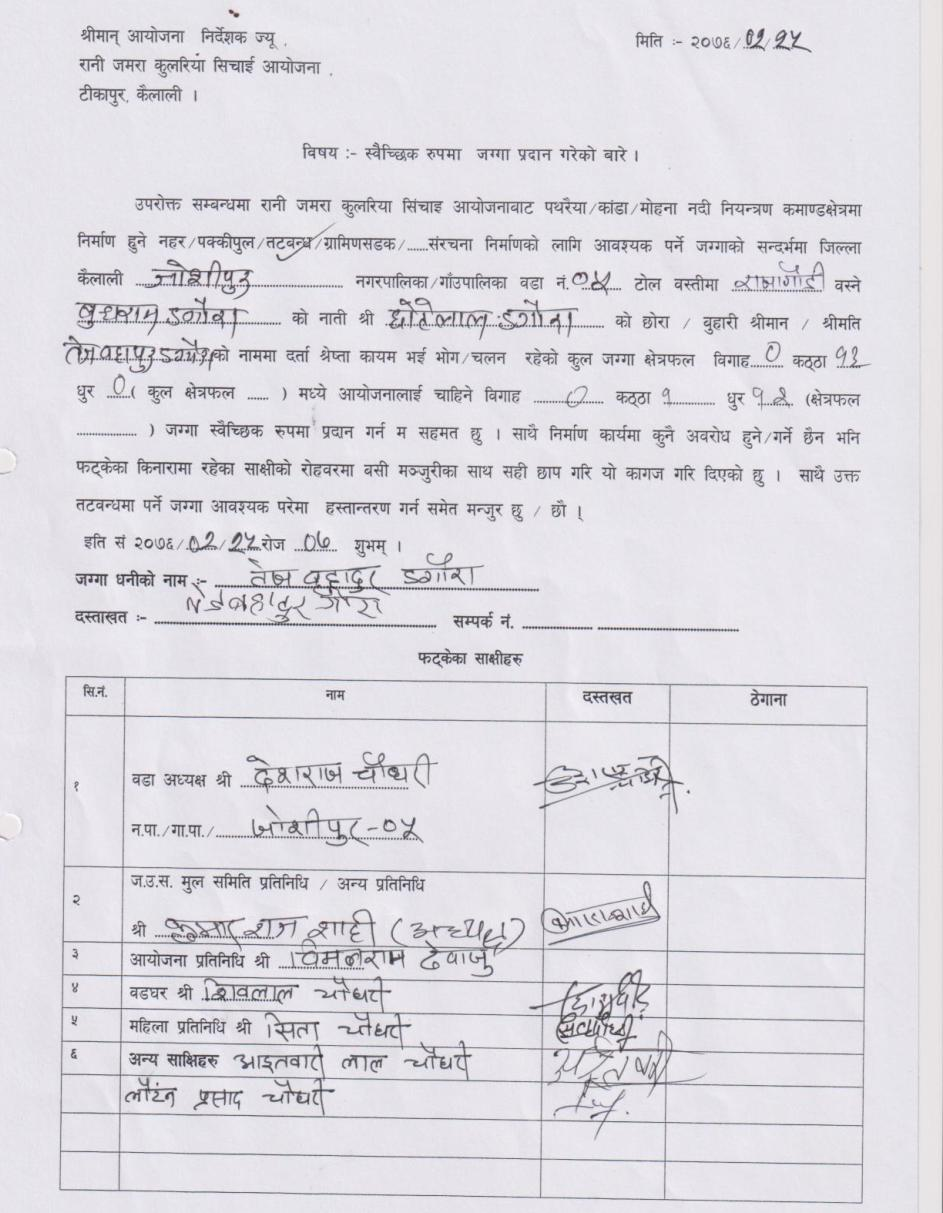 श्रीमान् आयोजना निर्देशक ज्यू , मिति :- २०७६/०२/२५
रानी जमरा कुलरिया सिचाई आयोजना ,
टीकापुर, कैलाली ।
विषय :- स्वैच्छिक रुपमा जग्गा प्रदान गरेको बारे ।
उपरोक्त सम्बन्धमा रानी जमरा कुलरिया सिंचाइ आयोजनाबाट पथरैया/कांडा/मोहना नदी नियन्त्रण कमाण्डक्षेत्रमा
निर्माण हुने नहर/पक्कीपुल/तटबन्ध/ग्रामिणसडक/......संरचना निर्माणको लागि आवश्यक पर्ने जग्गाको सन्दर्भमा जिल्ला
कैलाली ...जोशीपुर... नगरपालिका/गाँउपालिका वडा नं.०५... टोल वस्तीमा वस्ने
बुधराम डगौरा को नाती श्री छोटेलाल डगौरा को छोरा / वुहारी श्रीमान / श्रीमति
तेजवहादुर डगौरा को नाममा दर्ता श्रेष्ता कायम भई भोग/चलन रहेको कुल जग्गा क्षेत्रफल विगाह..० कठ्ठा १२
धुर ..०..( कुल क्षेत्रफल ...... ) मध्ये आयोजनालाई चाहिने विगाह ..........०...... कठ्ठा १........... धुर १२. (क्षेत्रफल
................. ) जग्गा स्वैच्छिक रुपमा प्रदान गर्न म सहमत छु । साथै निर्माण कार्यमा कुनै अवरोध हुने/गर्ने छैन भनि
फट्केका किनारामा रहेका साक्षीको रोहवरमा वसी मञ्जुरीका साथ सही छाप गरि यो कागज गरि दिएको छु । साथै उक्त
तटवन्धमा पर्ने जग्गा आवश्यक परेमा हस्तान्तरण गर्न समेत मन्जुर छु / छौ ।
इति सं २०७६/०२/२५ रोज ..०७.. शुभम् ।
जग्गा धनीको नाम :- तेज वहादुर डगौरा
दस्ताखत :- तेजबहादुर सम्पर्क नं. .................. ..............................
फट्केका साक्षीहरु
सि.नं. नाम दस्तखत ठेगाना
१ वडा अध्यक्ष श्री देशराज चौधरी
न.पा./गा.पा./ जोशीपुर-०५
२ ज.उ.स. मुल समिति प्रतिनिधि / अन्य प्रतिनिधि
श्री कुमार राज शाही (अध्यक्ष)
३ आयोजना प्रतिनिधि श्री विमलराम देवाजु
४ वडघर श्री शिवलाल चौधरी
५ महिला प्रतिनिधि श्री सिता चौधरी
६ अन्य साक्षिहरु आइतवारी लाल चौधरी
लौटन प्रसाद चौधरी